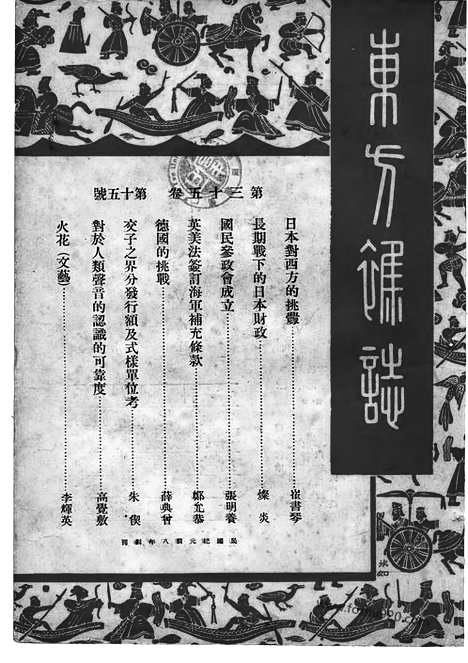 東方雜誌
第三十五卷 第十五號
日本對西方的挑釁 崔書琴
長期戰下的日本財政 燦炎
國民參政會成立 張明養
英美法簽訂海軍補充條款 鄭允恭
德國的挑戰 薛典曾
交子之界分發行額及式樣單位考 朱偰
對於人類聲音的認識的可靠度 高覺敷
火花（文藝） 李輝英